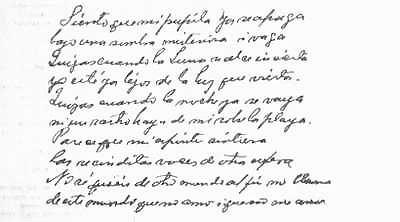 Siento que mi pupila ya se apaga
bajo una sombra misteriosa i vaga
Quizas cuando la Luna se alce incierta
yo esté ya lejos de la luz que vierta.
Quizas cuando la noche ya se vaya
ni un rastro haya de mi sobre la playa.
Parece que mi espiritu sintiera
las recónditas voces de otra esfera
No sé quién de otro mundo al fin me llama
de este mundo que no amo i que no me ama